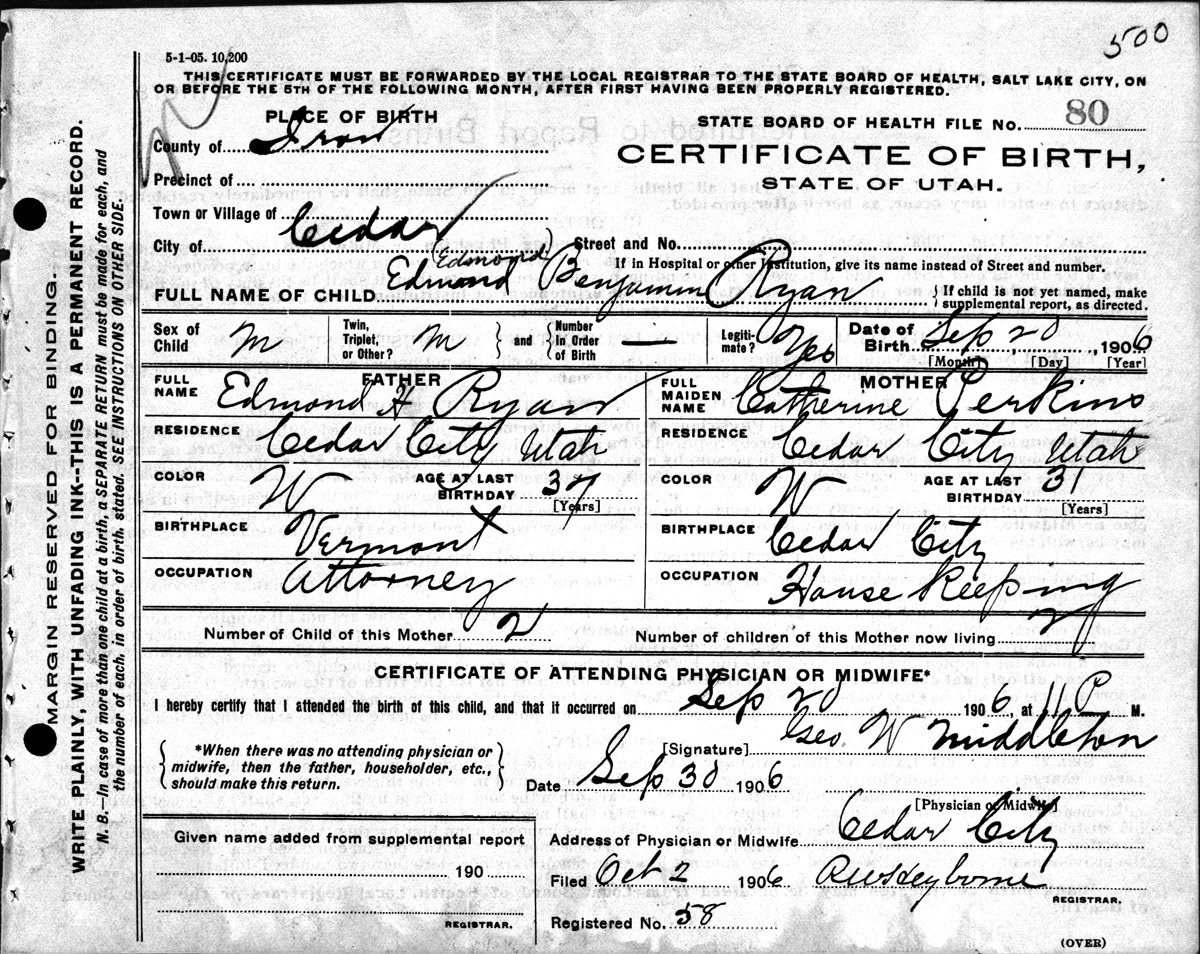 500
5-1-05. 10,200
THIS CERTIFICATE MUST BE FORWARDED BY THE LOCAL REGISTRAR TO THE STATE BOARD OF HEALTH, SALT LAKE CITY, ON
OR BEFORE THE 5TH OF THE FOLLOWING MONTH, AFTER FIRST HAVING BEEN PROPERLY REGISTERED.
MARGIN RESERVED FOR BINDING.
WRITE PLAINLY, WITH UNFADING INK--THIS IS A PERMANENT RECORD.
N. B.—In case of more than one child at a birth, a SEPARATE RETURN must be made for each, and
the number of each, in order of birth, stated. SEE INSTRUCTIONS ON OTHER SIDE.
PLACE OF BIRTH
County of Iron
Precinct of
Town or Village of Cedar
City of
STATE BOARD OF HEALTH FILE No. 80
CERTIFICATE OF BIRTH,
STATE OF UTAH.
Street and No.
If in Hospital or other Institution, give its name instead of Street and number.
(Edmond)
FULL NAME OF CHILD Edmond Benjamin Ryan { If child is not yet named, make supplemental report, as directed.
Sex of Child M Twin, Triplet, or Other? M } and { Number In Order of Birth — Legiti-mate? Yes Date of Birth Sep 20, 1906
[Month] [Day] [Year]
FATHER
FULL NAME Edmond H Ryan
RESIDENCE Cedar City Utah
COLOR W AGE AT LAST BIRTHDAY 37 [Years]
BIRTHPLACE Vermont
OCCUPATION Attorney
MOTHER
FULL MAIDEN NAME Catherine Perkins
RESIDENCE Cedar City Utah
COLOR W AGE AT LAST BIRTHDAY 31 [Years]
BIRTHPLACE Cedar City
OCCUPATION House Keeping
Number of Child of this Mother 2 Number of children of this Mother now living 2
CERTIFICATE OF ATTENDING PHYSICIAN OR MIDWIFE*
I hereby certify that I attended the birth of this child, and that it occurred on Sep 20 1906, at 11 P M.
{ *When there was no attending physician or
midwife, then the father, householder, etc.,
should make this return. }
[Signature] Geo. W Middleton
Date Sep 30 1906
[Physician or Midwife]
Given name added from supplemental report
190
REGISTRAR.
Address of Physician or Midwife Cedar City
Filed Oct 2 1906
REGISTRAR.
Registered No. 58
(OVER)